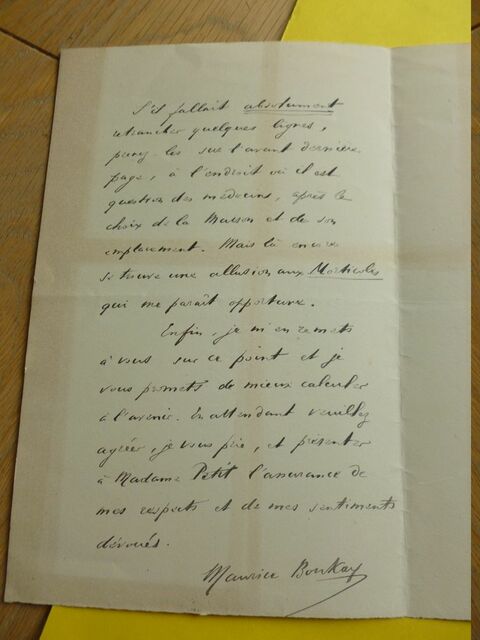 S'il fallait absolument
retrancher quelques lignes,
prenez-les sur l'avant dernière
page, à l'endroit où il est
question des médecins, après le
choix de la Maison et de son
emplacement. Mais là encore
se trouve une allusion aux Morticoles
qui me paraît opportune.
Enfin, je m'en remets
à vous sur ce point et je
vous promets de mieux calculer
à l'avenir. En attendant veuillez
agréer, je vous prie, et présenter
à Madame Petit l'assurance de
mes respects et de mes sentiments
dévoués.
Maurice Boukay